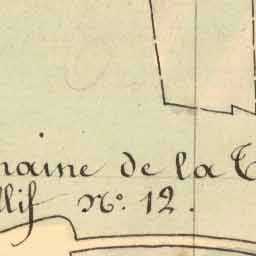 maine de la T
llif N°. 12.